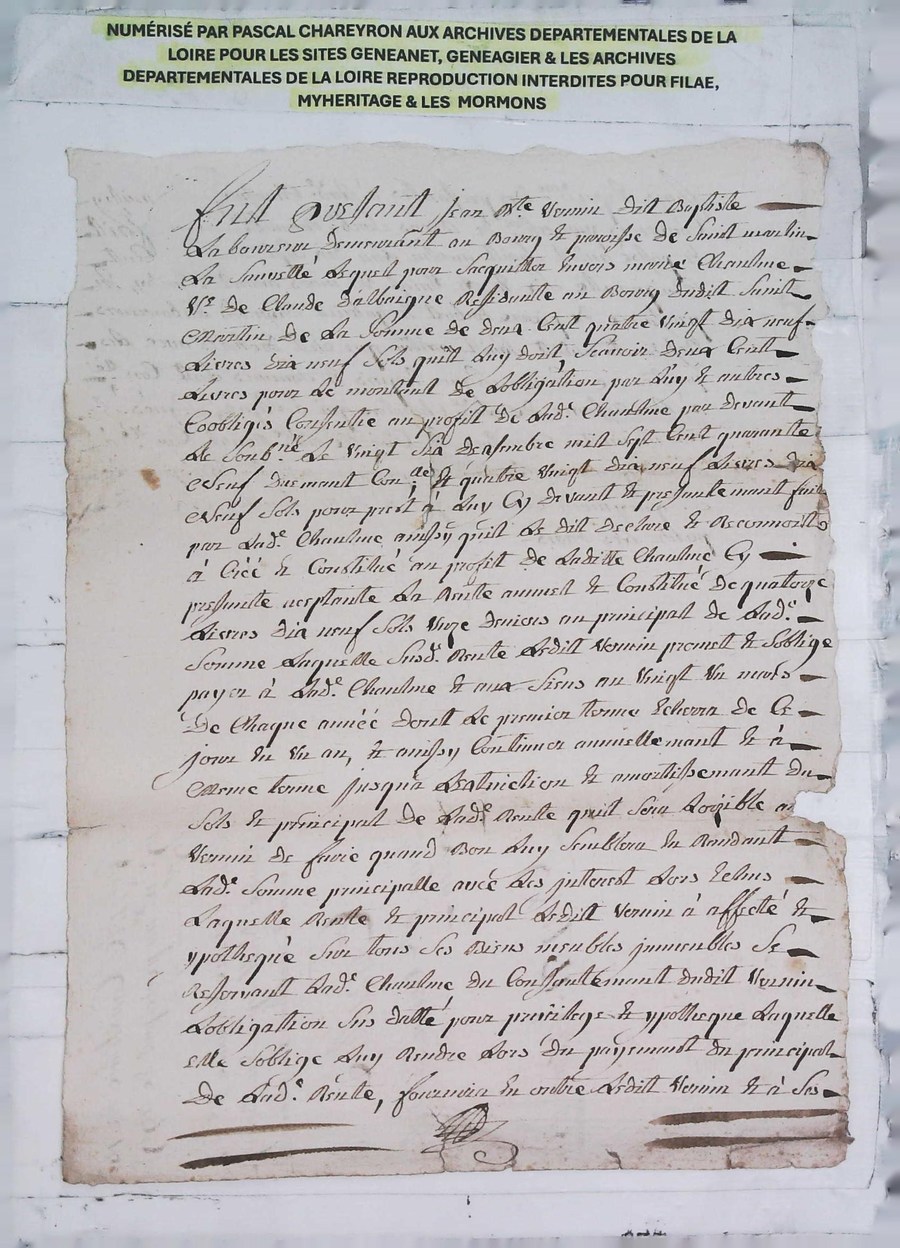 NUMÉRISÉ PAR PASCAL CHAREYRON AUX ARCHIVES DEPARTEMENTALES DE LA
LOIRE POUR LES SITES GENEANET, GENEAGIER & LES ARCHIVES
DEPARTEMENTALES DE LA LOIRE REPRODUCTION INTERDITES POUR FILAE,
MYHERITAGE & LES MORMONS
fut present jean Bte Vernin dit Baptiste
Laboureur demeurant au Bourg & paroisse de Saint martin
La Sauvetté Lequel pour Sacquitter Envers marie Chaulme
Ve de Claude dalbaigne Residante au Bourg dudit Saint
Martin de La Somme de deux Cent quatre Vingt dix neuf
Livres dix neuf Sols quil Luy doit, Scavoir deux Cent
Livres pour Le montant de Lobligation par Luy & autres
Coobligés Consentie au profit de Lade Chaulme par devant
Le Soubné Le Vingt Six desembre mil Sept Cent quarante
Neuf duement Conlle & quatre Vingt dix neuf Livres dix
Neuf Sols pour pret à Luy Cy devant & presantemant fait
par Lade Chaulme ainssy quil Le dit declare & Reconnoit
à Créé & Constitué au profit de Laditte Chaulme Cy
presante aceptante La Rente annuel & Constitué de quatorze
Livres dix neuf Sols Unze deniers au principal de Lade
Somme Laquelle Susde Rente Ledit Vernin promet & Soblige
payer à Lade Chaulme & aux Siens au Vingt Un mars
De Chaque année dont Le premier terme Echerra de Ce
jour En Un an, & ainssy Continuer annuellemant & à
Meme terme jusqua Lextinction & amortissemant du
Sols & principal de Lade Rente quil Sera Loizible au
Vernin de faire quand Bon Luy Semblera En Rendant
Lade Somme principalle avec Les jnterest Lors Echus
Laquelle Rente & principal Ledit Vernin à affecté &
ypothequé Sur tous Ses Biens meubles jmmeubles Se
Reservant Lade Chaulme du Consantemant dudit Vernin
Lobligation Sus datté pour privilege & ypotheque Laquelle
elle Soblige Luy Rendre Lors du payemant du principal
De Lade Rente, fournira En outre Ledit Vernin & à Ses